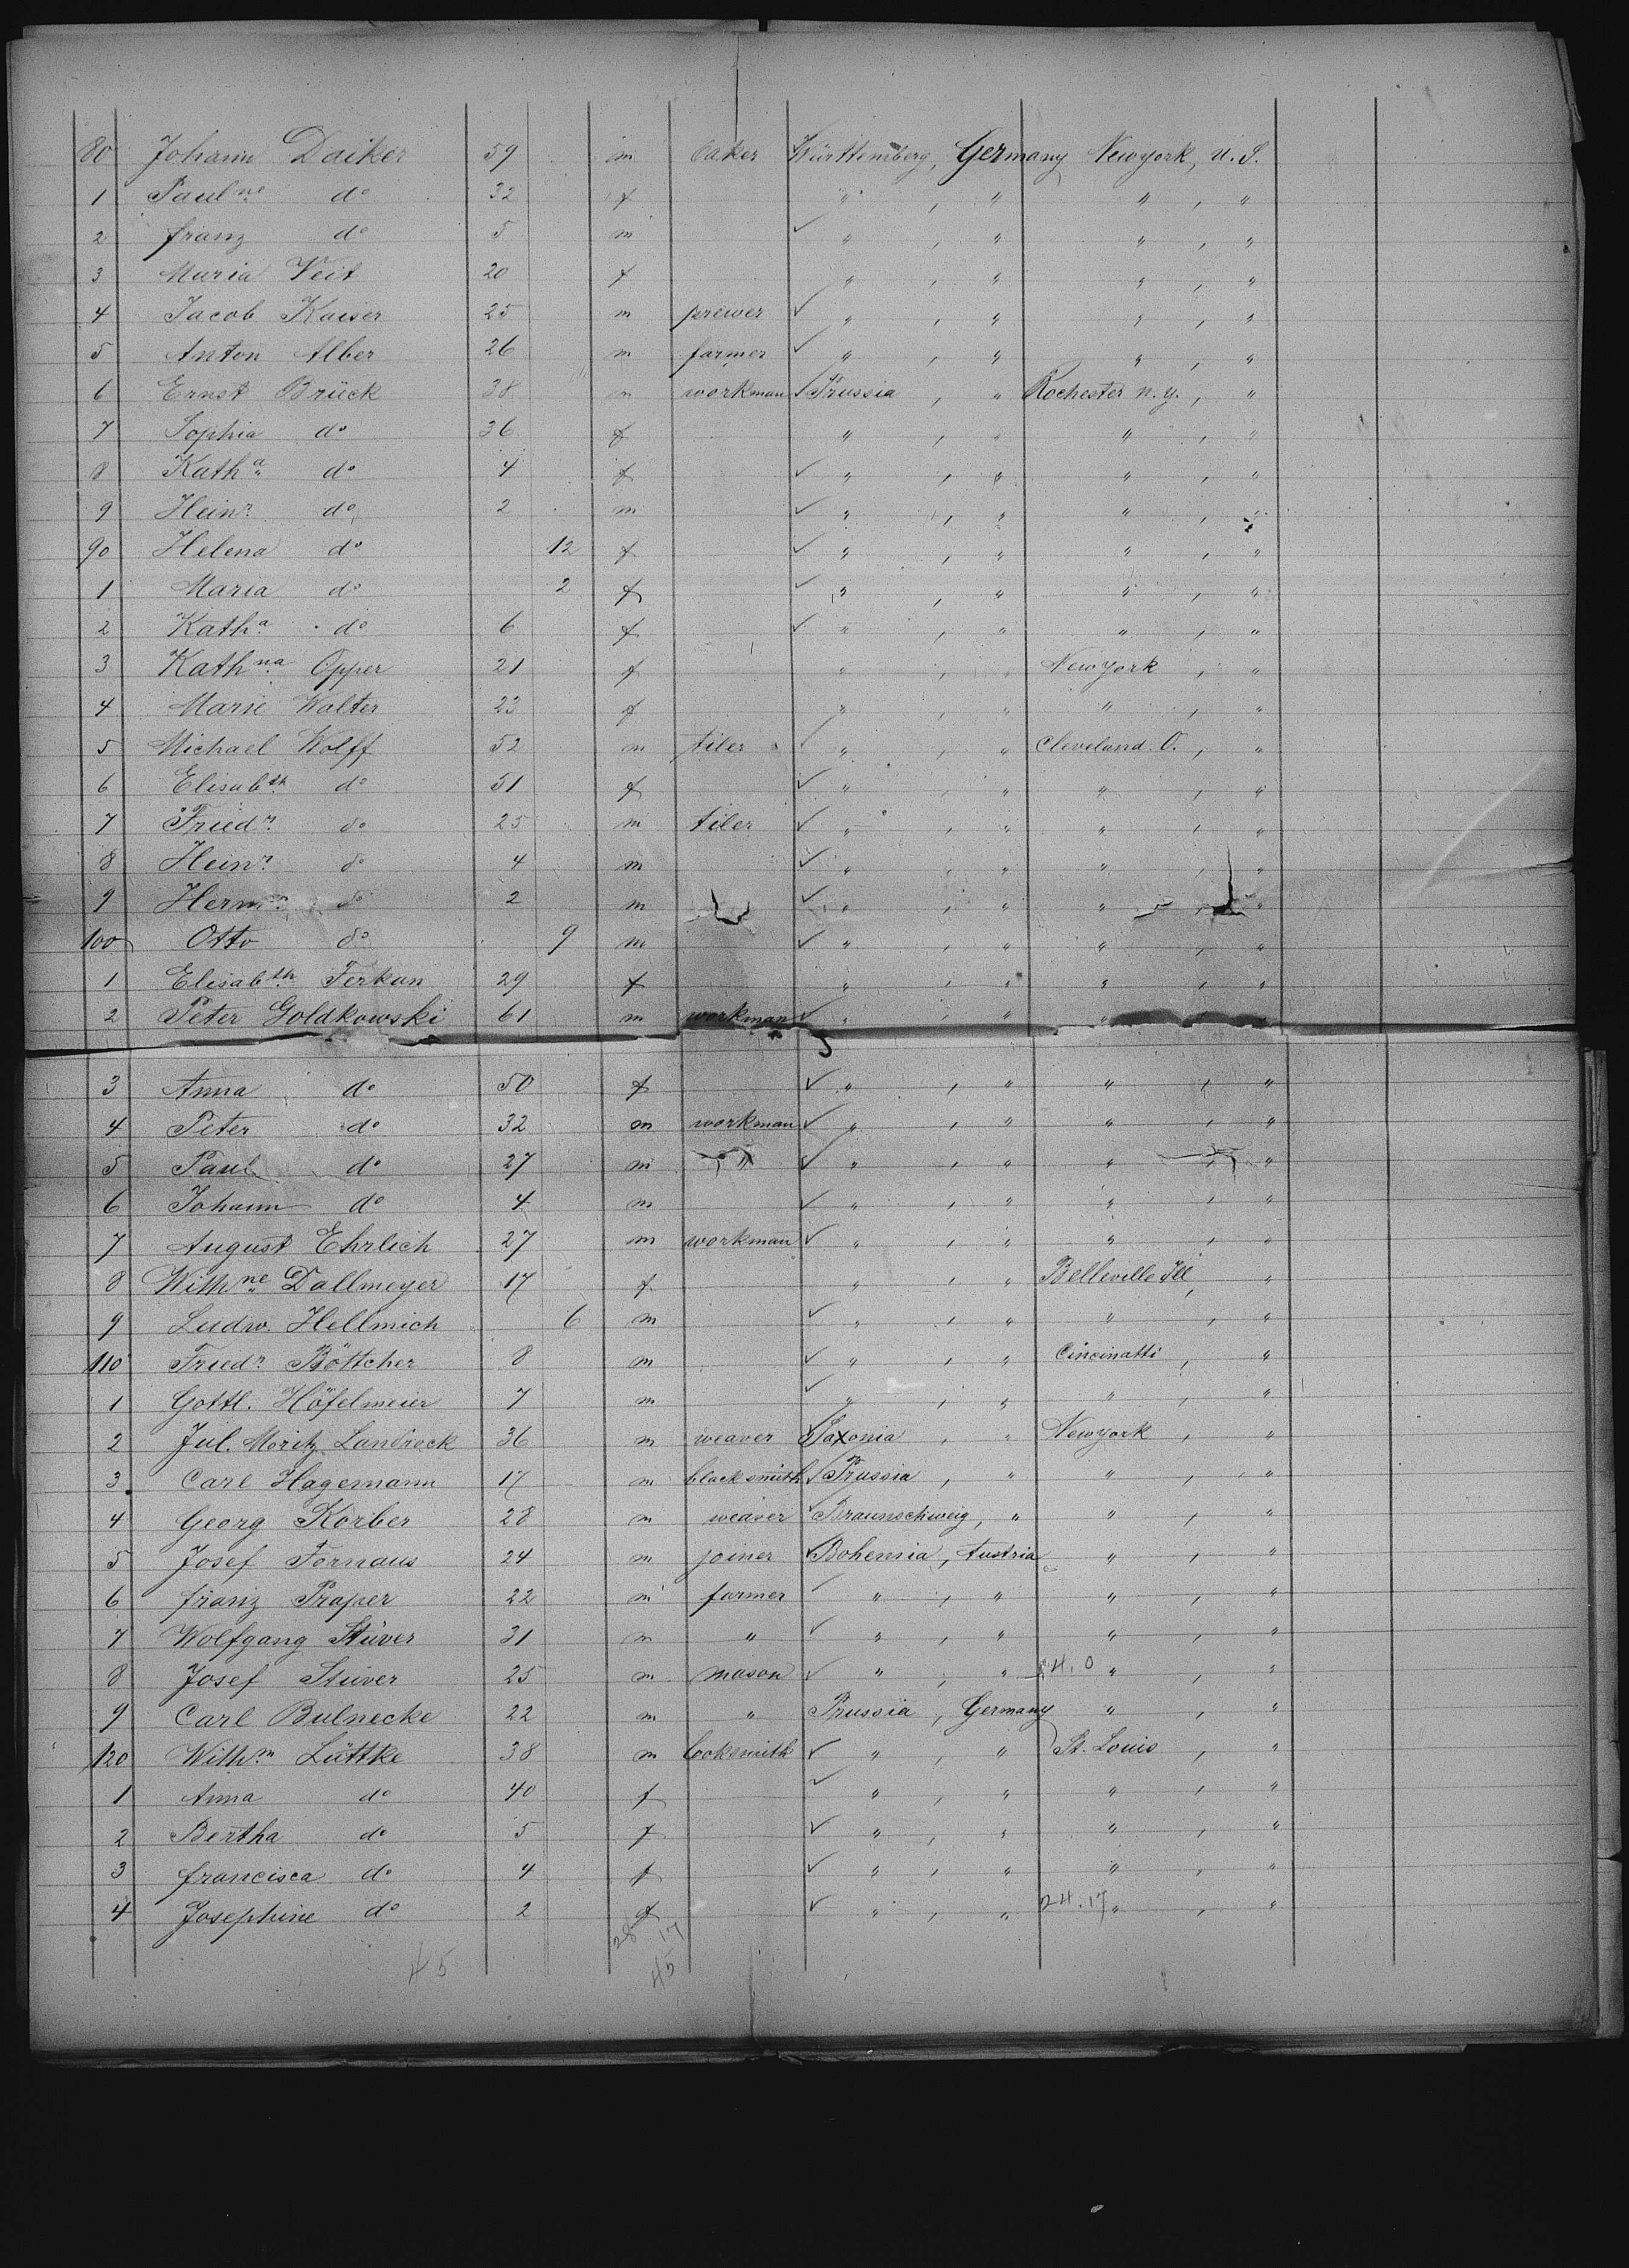 80 Johann Daiker 59 m baker Württemberg, Germany Newyork, U.S.
1 Paulne do 32 f " , " " , "
2 franz do 5 m ✓ " , " " , "
3 Maria Veit 20 f " , " " , "
4 Jacob Kaiser 25 m prewer ✓ " , " " , "
5 Anton Alber 26 m farmer ✓ " , " " , "
6 Ernst Brück 38 m workman ✓ Prussia , " Rochester n.y. , "
7 Sophia do 36 f " , " " , "
8 Katha do 4 f ✓ " , " " , "
9 Heinr do 2 m ✓ " , " " , "
90 Helena do 12 f ✓ " , " " , "
1 Maria do 2 f ✓ " , " " , "
2 Katha do 6 f ✓ " , " " , "
3 Kathna Opper 21 f " , " Newyork , "
4 Marie Walter 23 f " , " " , "
5 Michael Wolff 52 m tiler ✓ " , " Cleveland. O. , "
6 Elisabth do 51 f ✓ " , " " , "
7 Friedr do 25 m tiler ✓ " , " " , "
8 Heinr do 4 m ✓ " , " " , "
9 Hermn do 2 m ✓ " , " " , "
100 Otto do 9 m ✓ " , " " , "
1 Elisabth Ferkun 29 f " , " " , "
2 Peter Goldkowski 61 m workman ✓ " , " "
3 Anna do 50 f ✓ " , " " , "
4 Peter do 32 m workman ✓ " , " " , "
5 Paul do 27 m " ✓ " , " " , "
6 Johann do 4 m ✓ " , " " , "
7 August Ehrlich 27 m workman ✓ " , " " , "
8 Wilhne Dallmeyer 17 f " , " Belleville Ill , "
9 Ludw. Hellmich 6 m ✓ " , " " , "
110 Friedr Böttcher 8 m ✓ " , " Cincinatti , "
1 Gottl. Höfelmeier 7 m ✓ " , " " , "
2 Jul. Moritz Landrock 36 m weaver ✓ Saxonia , " Newyork , "
3 Carl Hagemann 17 m blacksmith ✓ Prussia , " " , "
4 Georg Körber 28 m weaver ✓ Braunschweig, " " , "
5 Josef Fornaus 24 m joiner ✓ Bohemia , Austria " , "
6 franz Praper 22 m farmer ✓ " , " " , "
7 Wolfgang Stüver 31 m " ✓ " , " " , "
8 Josef Stüver 25 m mason ✓ " , " 24.0 " , "
9 Carl Bulnecke 22 m " Prussia , Germany " , "
120 Wilhm Lüttke 38 m locksmith ✓ " , " St. Louis , "
1 Anna do 40 f ✓ " , " " , "
2 Bertha do 5 f ✓ " , " " , "
3 francisca do 4 f ✓ " , " " , "
4 Josephine do 2 f ✓ " , " 24.17 " , "
28 17
45 45